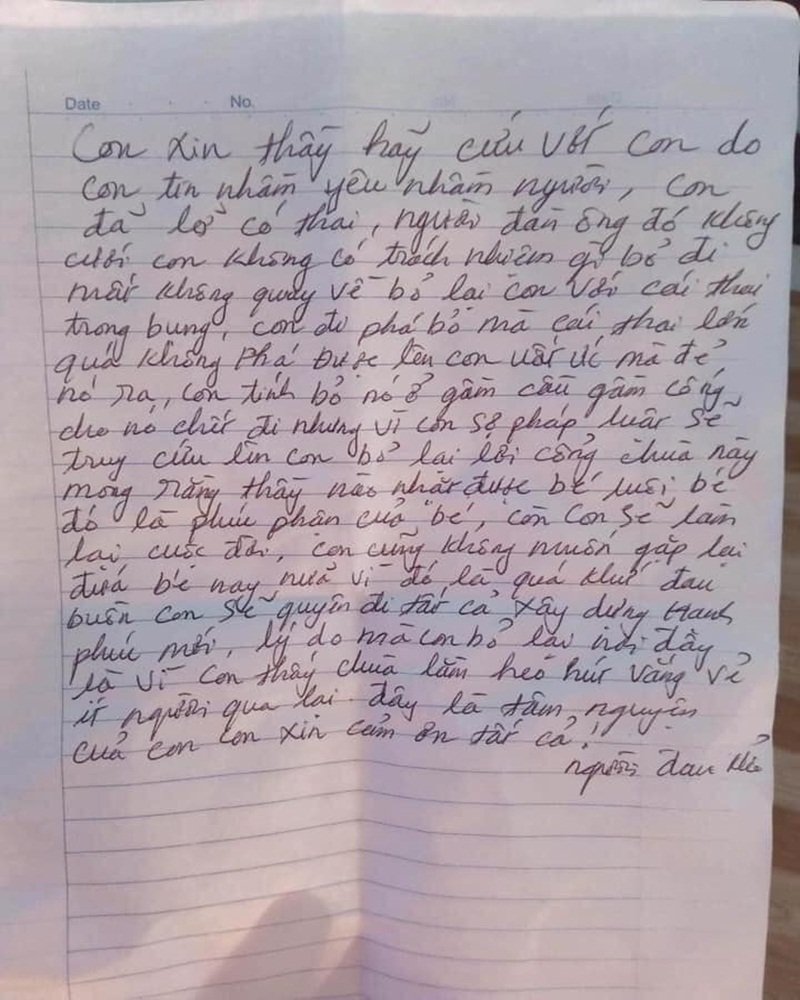 Date No.
Con xin thầy hãy cứu với con do
con tin nhầm yêu nhầm người, con
đã lỡ có thai, người đàn ông đó không
cưới con không có trách nhiệm gì bỏ đi
mất không quay về bỏ lại con với cái thai
trong bụng, con đi phá bỏ mà cái thai lớn
quá không phá được lên con uất ức mà đẻ
nó ra, con tính bỏ nó ở gầm cầu gầm cống
cho nó chết đi nhưng vì con sợ pháp luật sẽ
truy cứu lên con bỏ lại lối cổng chùa này
mong rằng thầy nào nhặt được bé nuôi bé
đó là phúc phần của bé, còn con sẽ làm
lại cuộc đời, con cũng không muốn gặp lại
đứa bé nay nữa vì đó là quá khứ đau
buồn con sẽ quyên đi tất cả xây dựng Hanh
phúc mới, lý do mà con bỏ lại nơi đây
là vì con thấy chùa lằm heo hút vắng vẻ
ít người qua lại. đây là tâm nguyện
của con con xin cảm ơn tất cả!
người đau khổ